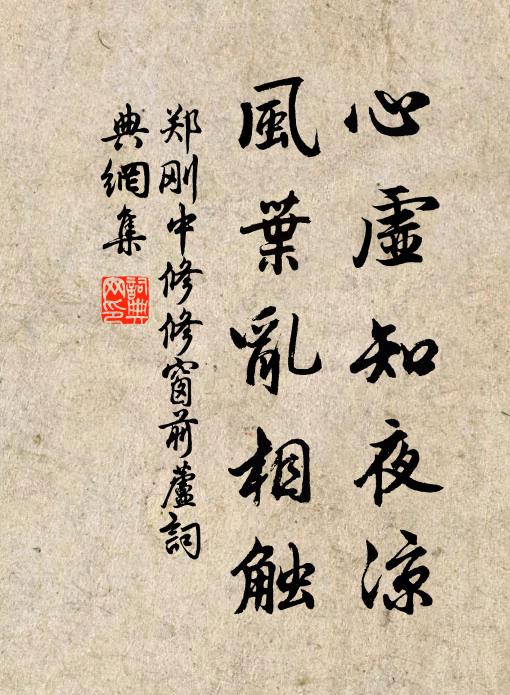 心虚知夜凉
風葉亂相触
郑刚中修修窗前蘆詞
典網集
詞典
网印